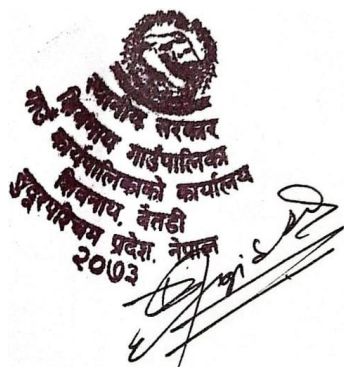 स्थानीय सरकार
शिवनाथ गाउँपालिका
गाउँ कार्यपालिकाको कार्यालय
शिवनाथ, बैतडी
सुदूरपश्चिम प्रदेश, नेपाल
२०७३